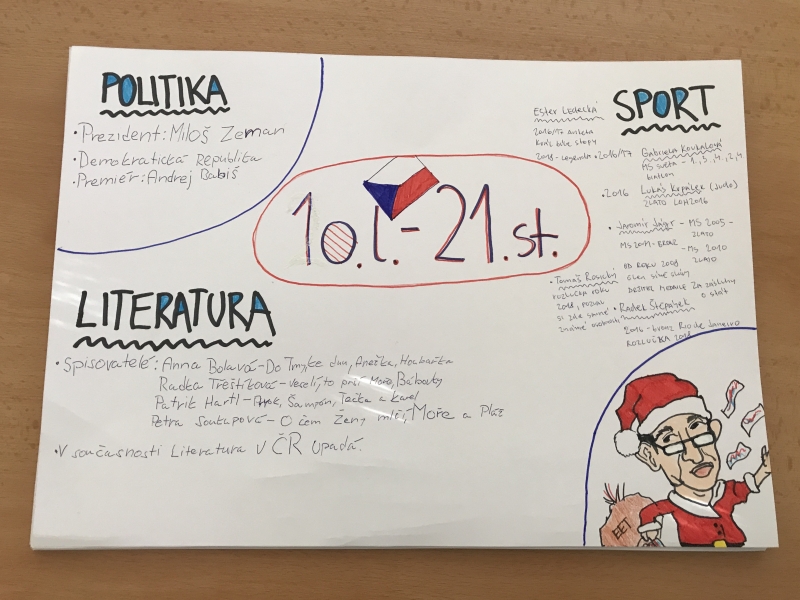 POLITIKA
• Prezident: Miloš Zeman
• Demokratická republika
• Premiér: Andrej Babiš
10. l. - 21. st.
SPORT
Ester Ledecká
2016/17 anketa
Král bílé stopy
2018 - legenda
• 2016/17 Gabriela Koukalová
MS světa - 1., 3., 4., 2., 4
biatlon
• 2016 Lukáš Krpálek (judo)
ZLATO LOH 2016
• Jaromír Jágr - MS 2005 -
ZLATO
MS 2011 - BRONZ - MS 2010
ZLATO
OD ROKU 2008
člen síně slávy
DRŽITEL MEDAILE ZA ZÁSLUHY
O stát
• Tomáš Rosický
rozlučka roku
2018, pozval
si zde samé
známé osobnosti
• Radek Štěpánek
2016 - bronz Rio de Janeiro
ROZLUČKA
LITERATURA
• Spisovatelé: Anna Bolavá - Do Tmy, Anežka,
Radka Třeštíková - Veselí, to prší moře, Bábovky
Patrik Hartl - Prvok, Šampón, Tečka a Karel
Petra Soukupová - O čem ženy mlčí, Moře a Pláž
• V současnosti Literatura v ČR upadá.
EET